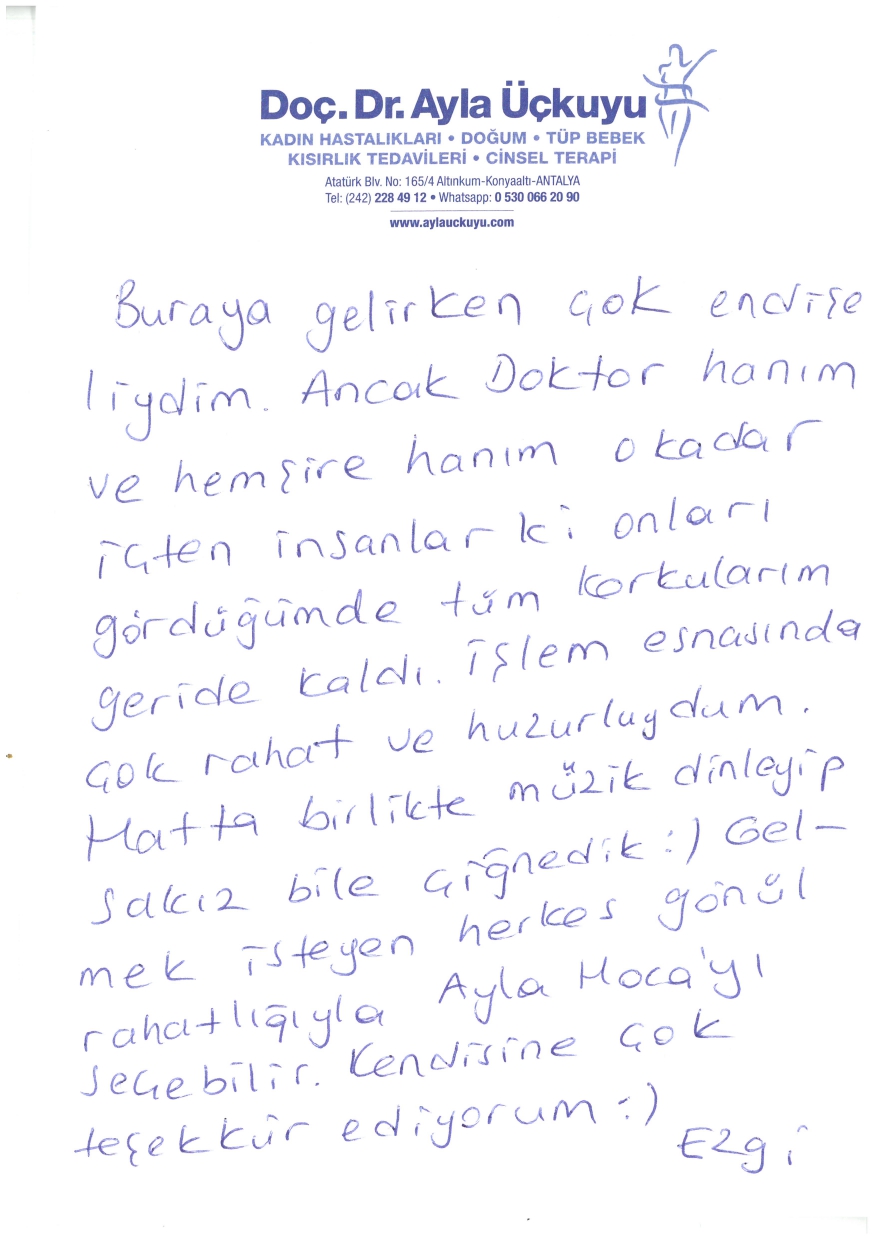 Doç. Dr. Ayla Üçkuyu
KADIN HASTALIKLARI • DOĞUM • TÜP BEBEK
KISIRLIK TEDAVİLERİ • CİNSEL TERAPİ
Atatürk Blv. No: 165/4 Altınkum-Konyaaltı-ANTALYA
Tel: (242) 228 49 12 • Whatsapp: 0 530 066 20 90
www.aylauckuyu.com
Buraya gelirken çok endişe
liydim. Ancak Doktor hanım
ve hemşire hanım okadar
içten insanlar ki onları
gördüğümde tüm korkularım
geride kaldı. işlem esnasında
çok rahat ve huzurluydum.
Hatta birlikte müzik dinleyip
sakız bile çiğnedik :) Gel-
mek isteyen herkes gönül
rahatlığıyla Ayla Hoca'yı
seçebilir. Kendisine çok
teşekkür ediyorum :)
Ezgi